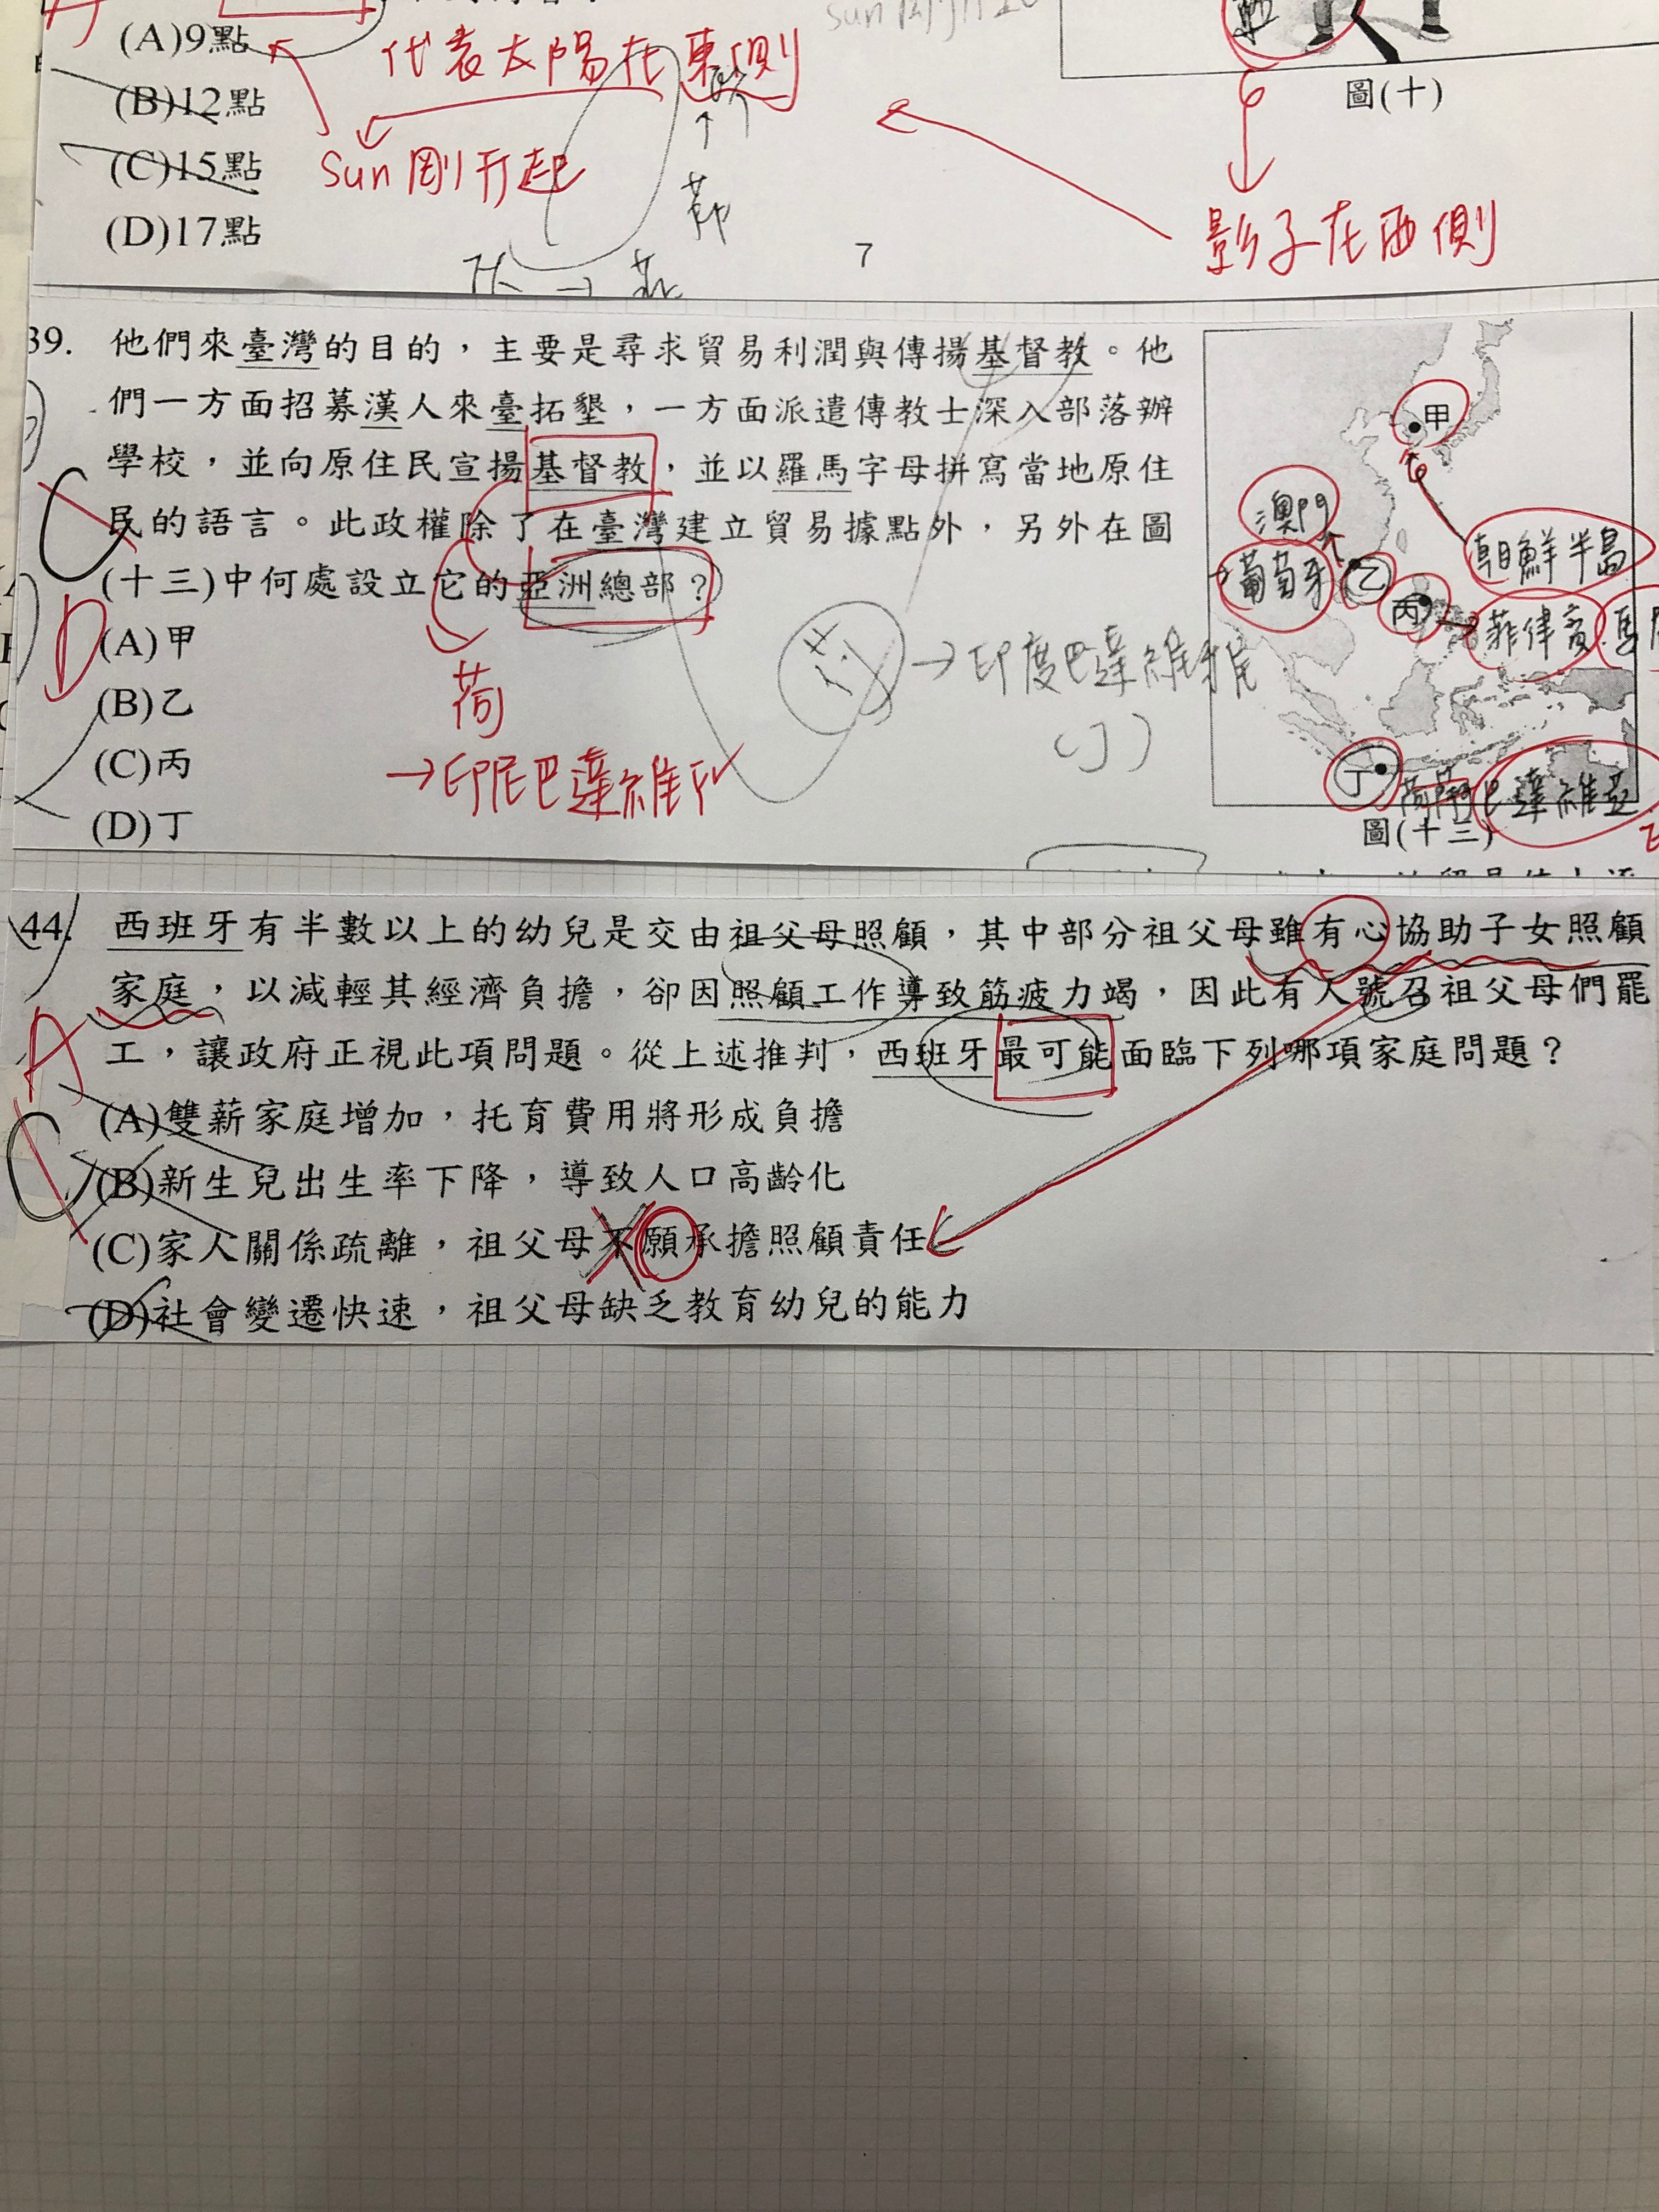 (A)9點
代表太陽在東側
圖(十)
(B)12點
(C)15點
Sun剛升起
(D)17點
影子在西側
7
39. 他們來臺灣的目的，主要是尋求貿易利潤與傳揚基督教。他
們一方面招募漢人來臺拓墾，一方面派遣傳教士深入部落辦
學校，並向原住民宣揚基督教，並以羅馬字母拼寫當地原住
民的語言。此政權除了在臺灣建立貿易據點外，另外在圖
(十三)中何處設立它的亞洲總部？
C
D
(A)甲
(B)乙
(C)丙
(D)丁
荷
→印尼巴達維亞
荷→印度巴達維雅
(丁)
甲
澳門
朝鮮半島
葡萄牙
乙
丙
→菲律賓
丁
巴達維亞
圖(十三)
44. 西班牙有半數以上的幼兒是交由祖父母照顧，其中部分祖父母雖有心協助子女照顧
家庭，以減輕其經濟負擔，卻因照顧工作導致筋疲力竭，因此有人號召祖父母們罷
工，讓政府正視此項問題。從上述推判，西班牙最可能面臨下列哪項家庭問題？
A
C
(A)雙薪家庭增加，托育費用將形成負擔
(B)新生兒出生率下降，導致人口高齡化
(C)家人關係疏離，祖父母不願承擔照顧責任
(D)社會變遷快速，祖父母缺乏教育幼兒的能力